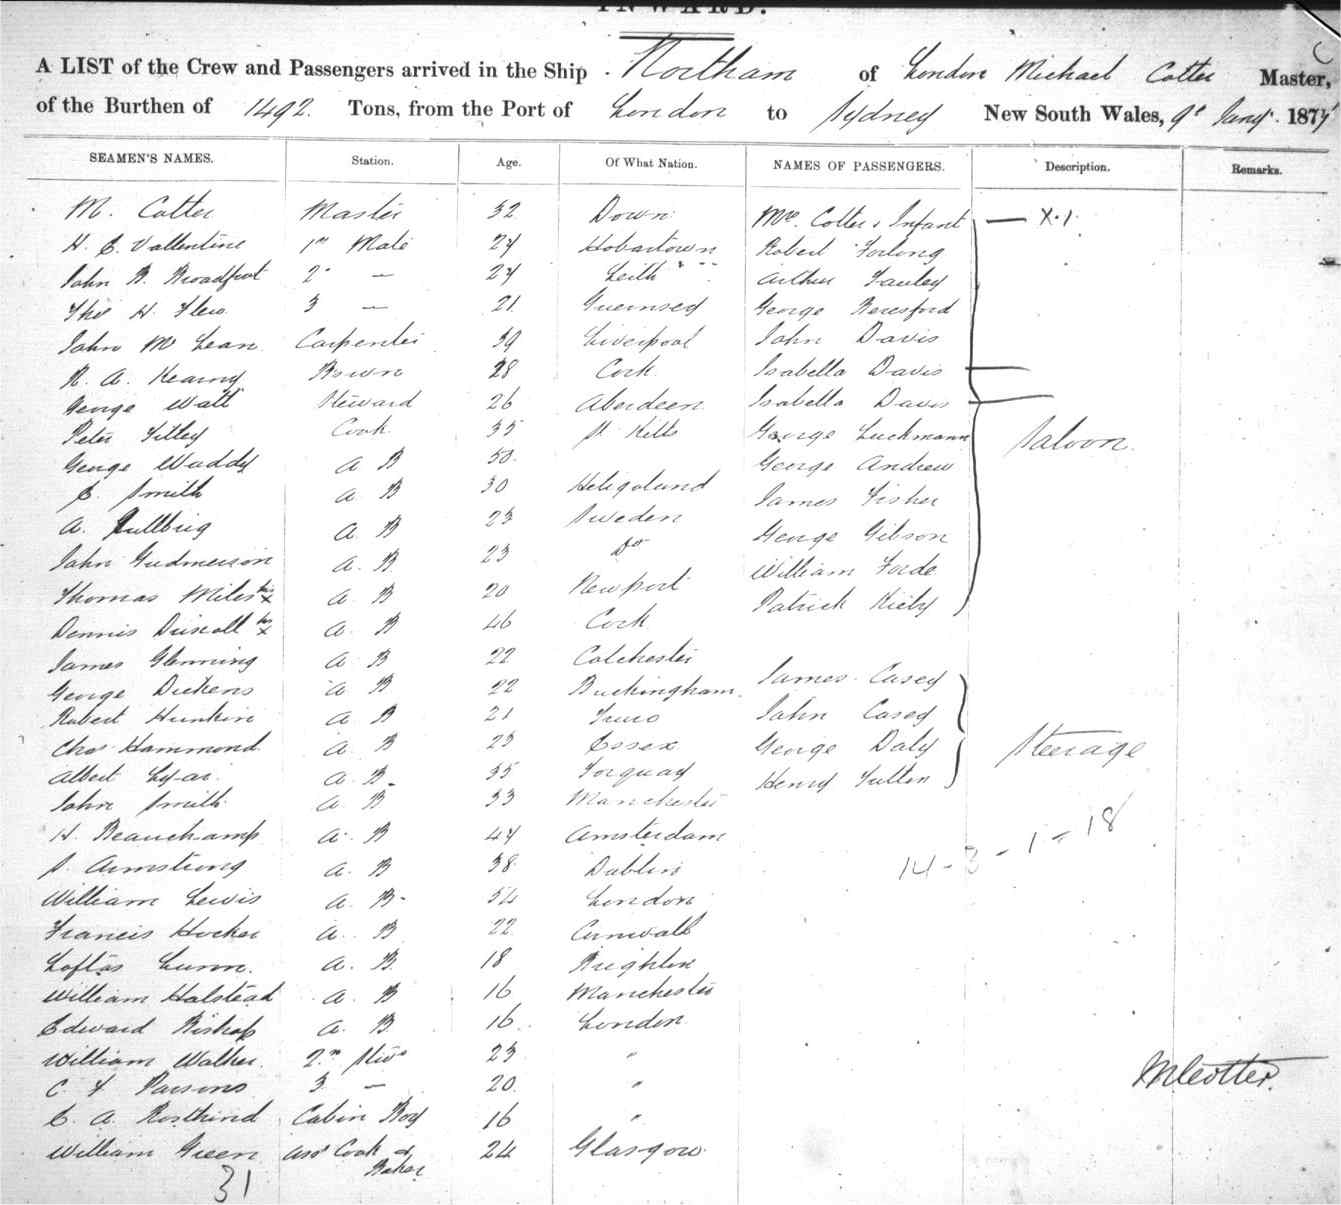 INWARD.
A LIST of the Crew and Passengers arrived in the Ship Northam of London Michael Cotter Master,
of the Burthen of 1492. Tons, from the Port of London to Sydney New South Wales, 9th Jany. 187
SEAMEN'S NAMES. Station. Age. Of What Nation. NAMES OF PASSENGERS. Description. Remarks.
M. Cotter Master 32 Down Mrs Cotter & Infant — X.1.
H. E. Vallentine 1st Mate 24 Hobartown Robert Forlong
John B. Broadfoot 2 — 24 Leith Arthur Fauley
Thos H. Flew 3 — 21 Guernsey George Beresford
John Mc Lean Carpenter 39 Liverpool John Davis
R. A. Kearny Bosun 28 Cork Isabella Davis
George Watt Steward 26 Aberdeen Isabella Davis
Peter Cook 35 St Kitts George Luckmann Saloon.
George Waddy A B 50 George Andrew
C. Smith A B 30 Heligoland James Fisher
A. A B 23 Sweden George Gibson
John Gudmerson A B 23 Do William Forde
Thomas Miles his x A B 20 Newport Patrick Kiely
Dennis Driscoll his x A. B 46 Cork
James Glenning A B 22 Colchester James Casey
George Dickens A B 22 Buckingham John Casey
Robert Hunkin A B 21 Truro George Daly Steerage
Chas Hammond A. B 23 Essex Henry Fullen
Albert A. B. 35 Torquay
John Smith A B 33 Manchester
H. Beauchamp A. B 44 Amsterdam 14 - 3 - 1 = 18
S. Armstrong A. B 38 Dublin
William Lewis A. B. 54 London
Francis Hocker A. B 22 Cornwall
Loftas Lunn. A. B. 18 Brighton
William Halstead A B 16 Manchester
Edward Bishop A. B. 16 London
William Walker. 2nd Stwd 23 "
C. F Parsons 3 — 20 " M Cotter.
E. A. Rosthind Cabin Boy 16 "
William Green Asst Cook & Baker 24 Glasgow
31